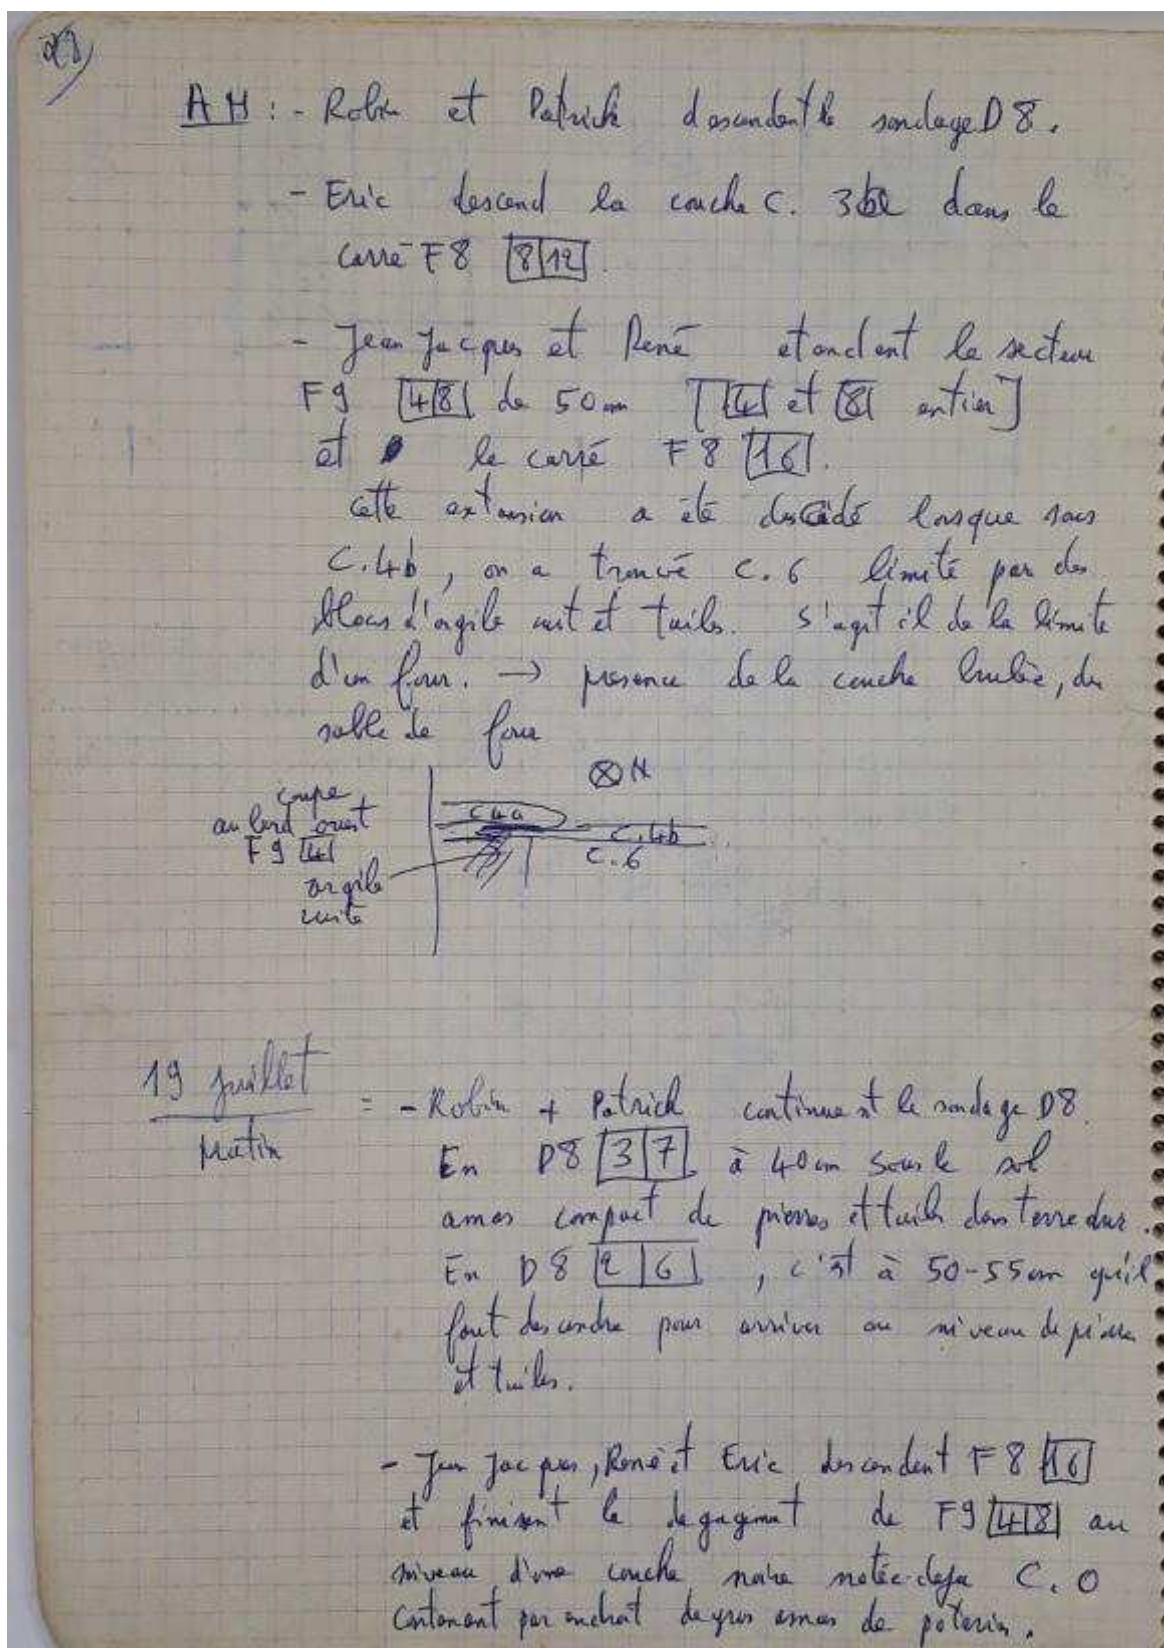 28
AM : - Robin et Patrick descendent le sondage D8.
- Eric descend la couche C. 3b dans le
carré F8 8 12.
- Jean Jacques et René etendent le secteur
F9 4 8 de 50cm [4 et 8 entier]
et le carré F8 16.
cette extension a été descidé lorsque sous
C.4b, on a trouvé C.6 limité par des
blocs d'argile cuit et tuiles. S'agit il de la limite
d'un four. → presence de la couche brulée, du
sable de four
⊗ N
coupe
au bord ouest
F9 4
argile
cuite
C4a
C.4b
C.6
19 juillet
Matin
= - Robin + Patrick continuent le sondage D8.
En D8 3 7 à 40cm sous le sol
amas compact de pierres et tuiles dans terre dur.
En D8 2 6, c'est à 50-55cm qu'il
faut descendre pour arriver au niveau de pierre
et tuiles.
- Jean Jacques, René et Eric descendent F8 16
et finissent le degagement de F9 4 8 au
niveau d'une couche noire notée deja C.0
Contenant par endroit de gros amas de poteries.